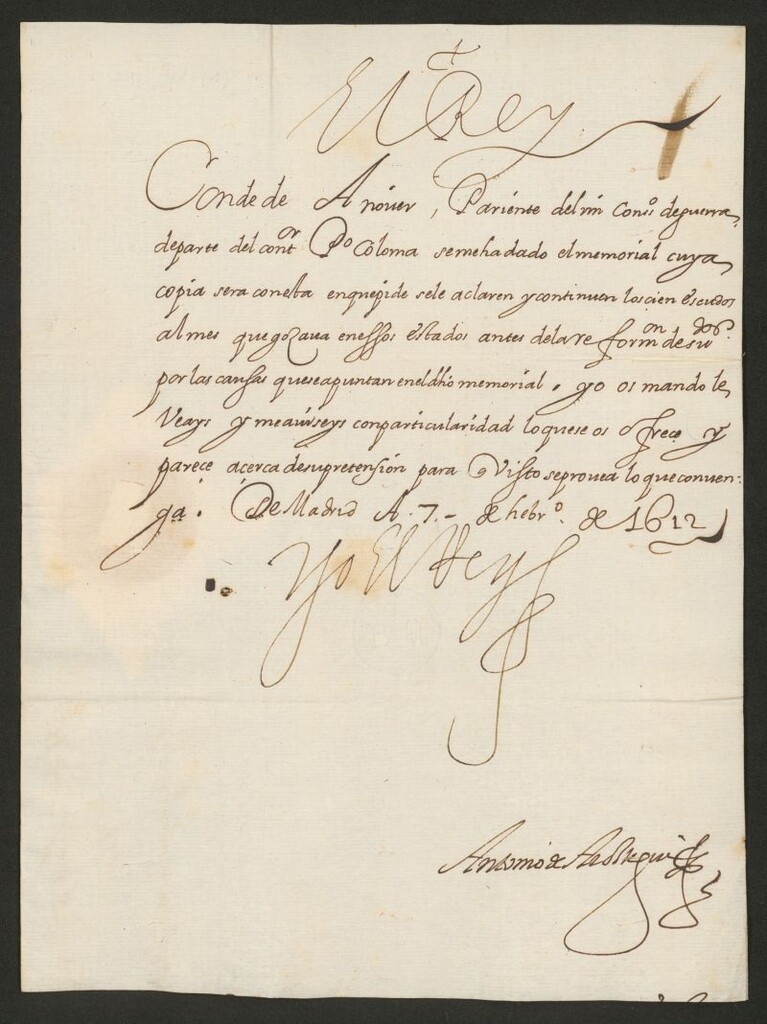 El Rey
Conde de Añover, Pariente del mi Cons.º de guerra
de parte del cont.or P.o Coloma se me ha dado el memorial cuya
copia sera con esta en que pide se le aclaren y continuen los cien escudos
al mes que gozaua en essos estados antes de la reform.on de su
por las causas que se apuntan en el dho memorial. yo os mando le
Veays y me auiseys con particularidad lo que se os ofrece y
parece acerca de su pretension para q Visto se prouea lo que conuen-
ga. De Madrid A. 7.- de hebr.o de 1612
Yo El Rey
Antonio de Arostegui